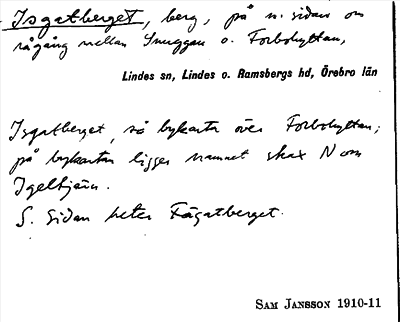 Isgatberget, berg, på n. sidan om
rågång mellan Snuggan o. Forbohyttan,
Lindes sn, Lindes o. Ramsbergs hd, Örebro län
Isgatberget, så bykarta över Forbohyttan;
på bykartan ligger namnet strax N om
Igeltjärn.
S. Sidan heter Fägatberget.
SAM JANSSON 1910-11